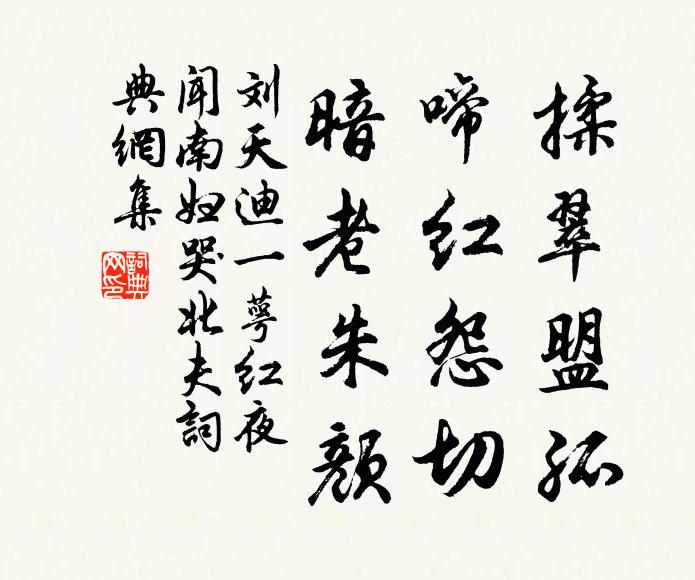 揉翠盟孤
啼红怨切
暗老朱颜
刘天迪一萼红夜
闻南妇哭北夫詞
典網集
詞典网印